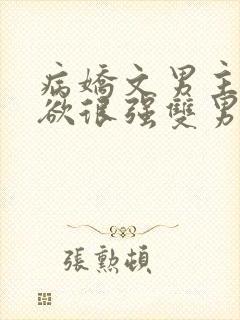 病嬌文男主
欲很强雙男
張勲頓